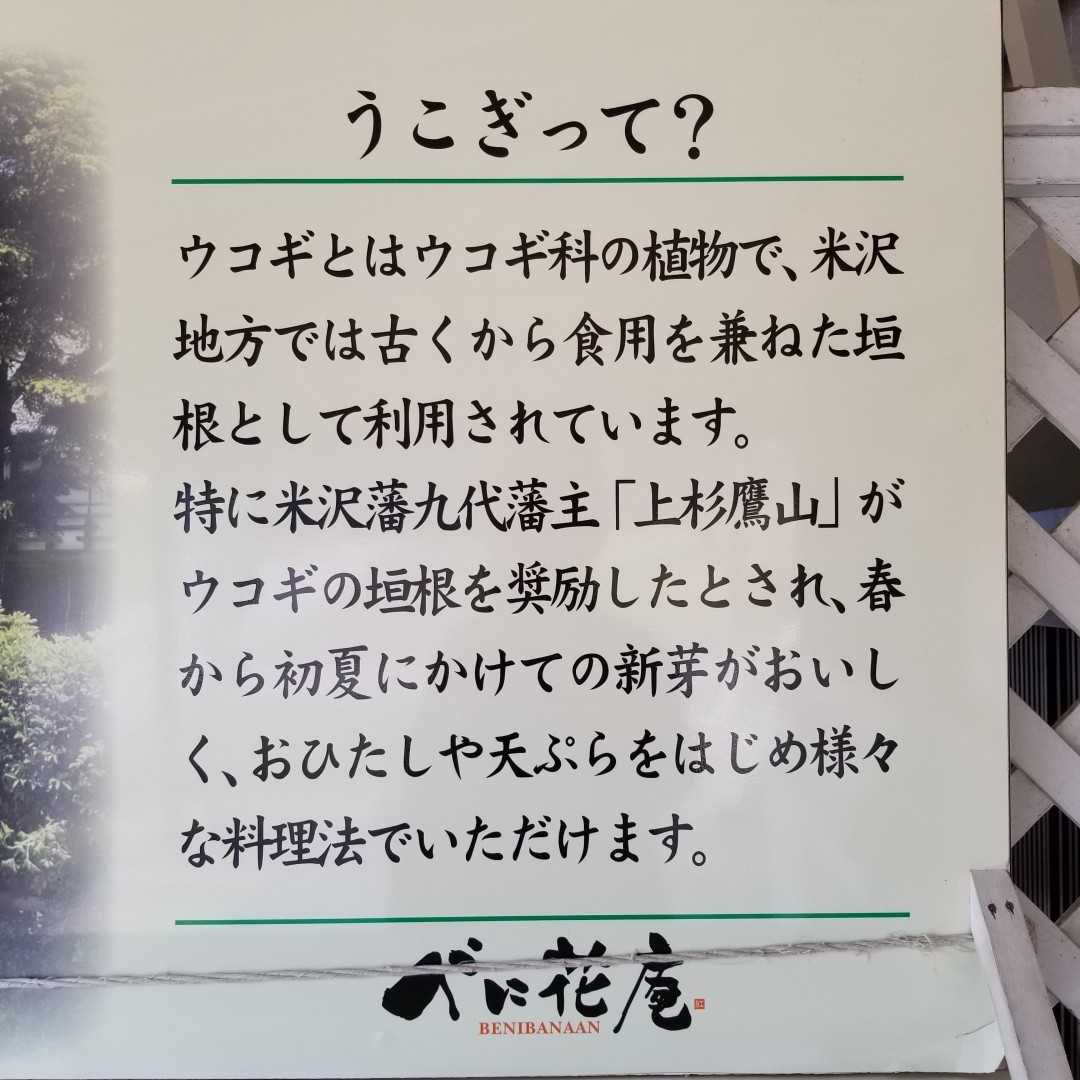 うこぎって?
ウコギとはウコギ科の植物で、米沢
地方では古くから食用を兼ねた垣
根として利用されています。
特に米沢藩九代藩主「上杉鷹山」が
ウコギの垣根を奨励したとされ、春
から初夏にかけての新芽がおいし
く、おひたしや天ぷらをはじめ様々
な料理法でいただけます。
べに花庵
BENIBANAAN